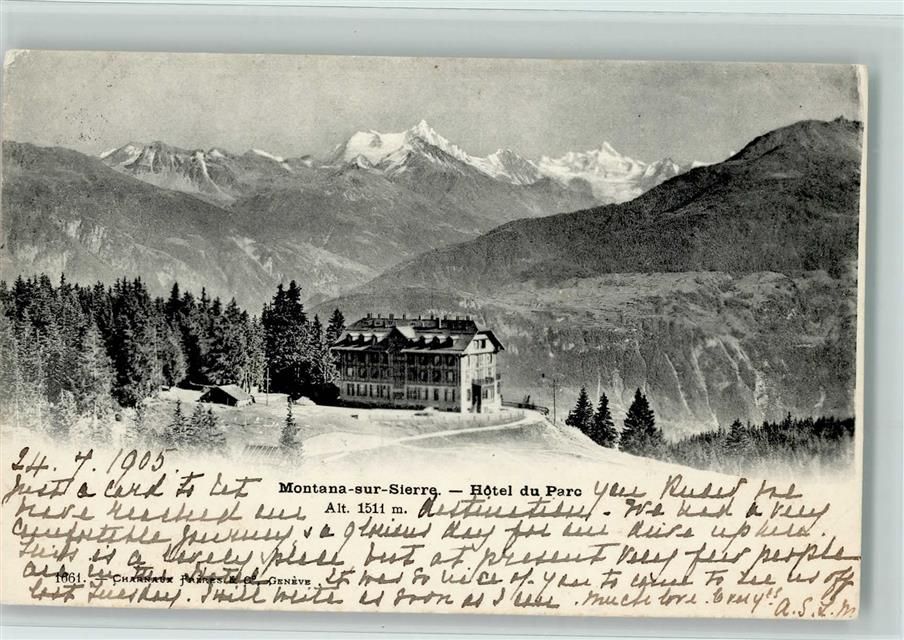 24. 7. 1905
Montana-sur-Sierre. — Hôtel du Parc
Alt. 1511 m.
Just a card to let you know we
have reached our destination. We had a very
comfortable journey & a glorious day for our drive up here.
This is a lovely place but at present very few people
are in the hotel. It was so nice of you to come to see us off
last Tuesday. I will write as soon as I can. Much love. Every
A. S. L. M.
1661. — Charnaux Frères & Co, Genève